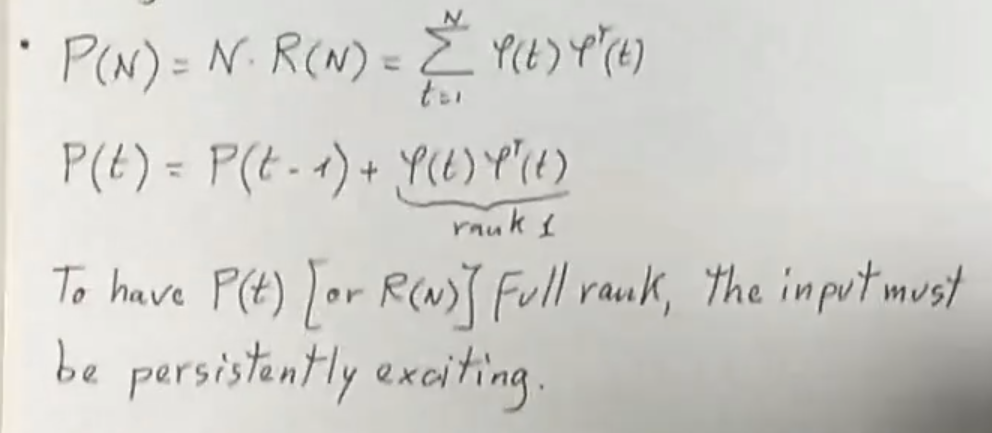 • P(N) = N · R(N) = ∑_{t=1}^{N} φ(t) φᵀ(t)
P(t) = P(t-1) + φ(t) φᵀ(t)
rank 1
To have P(t) [or R(N)] Full rank, the input must
be persistently exciting.